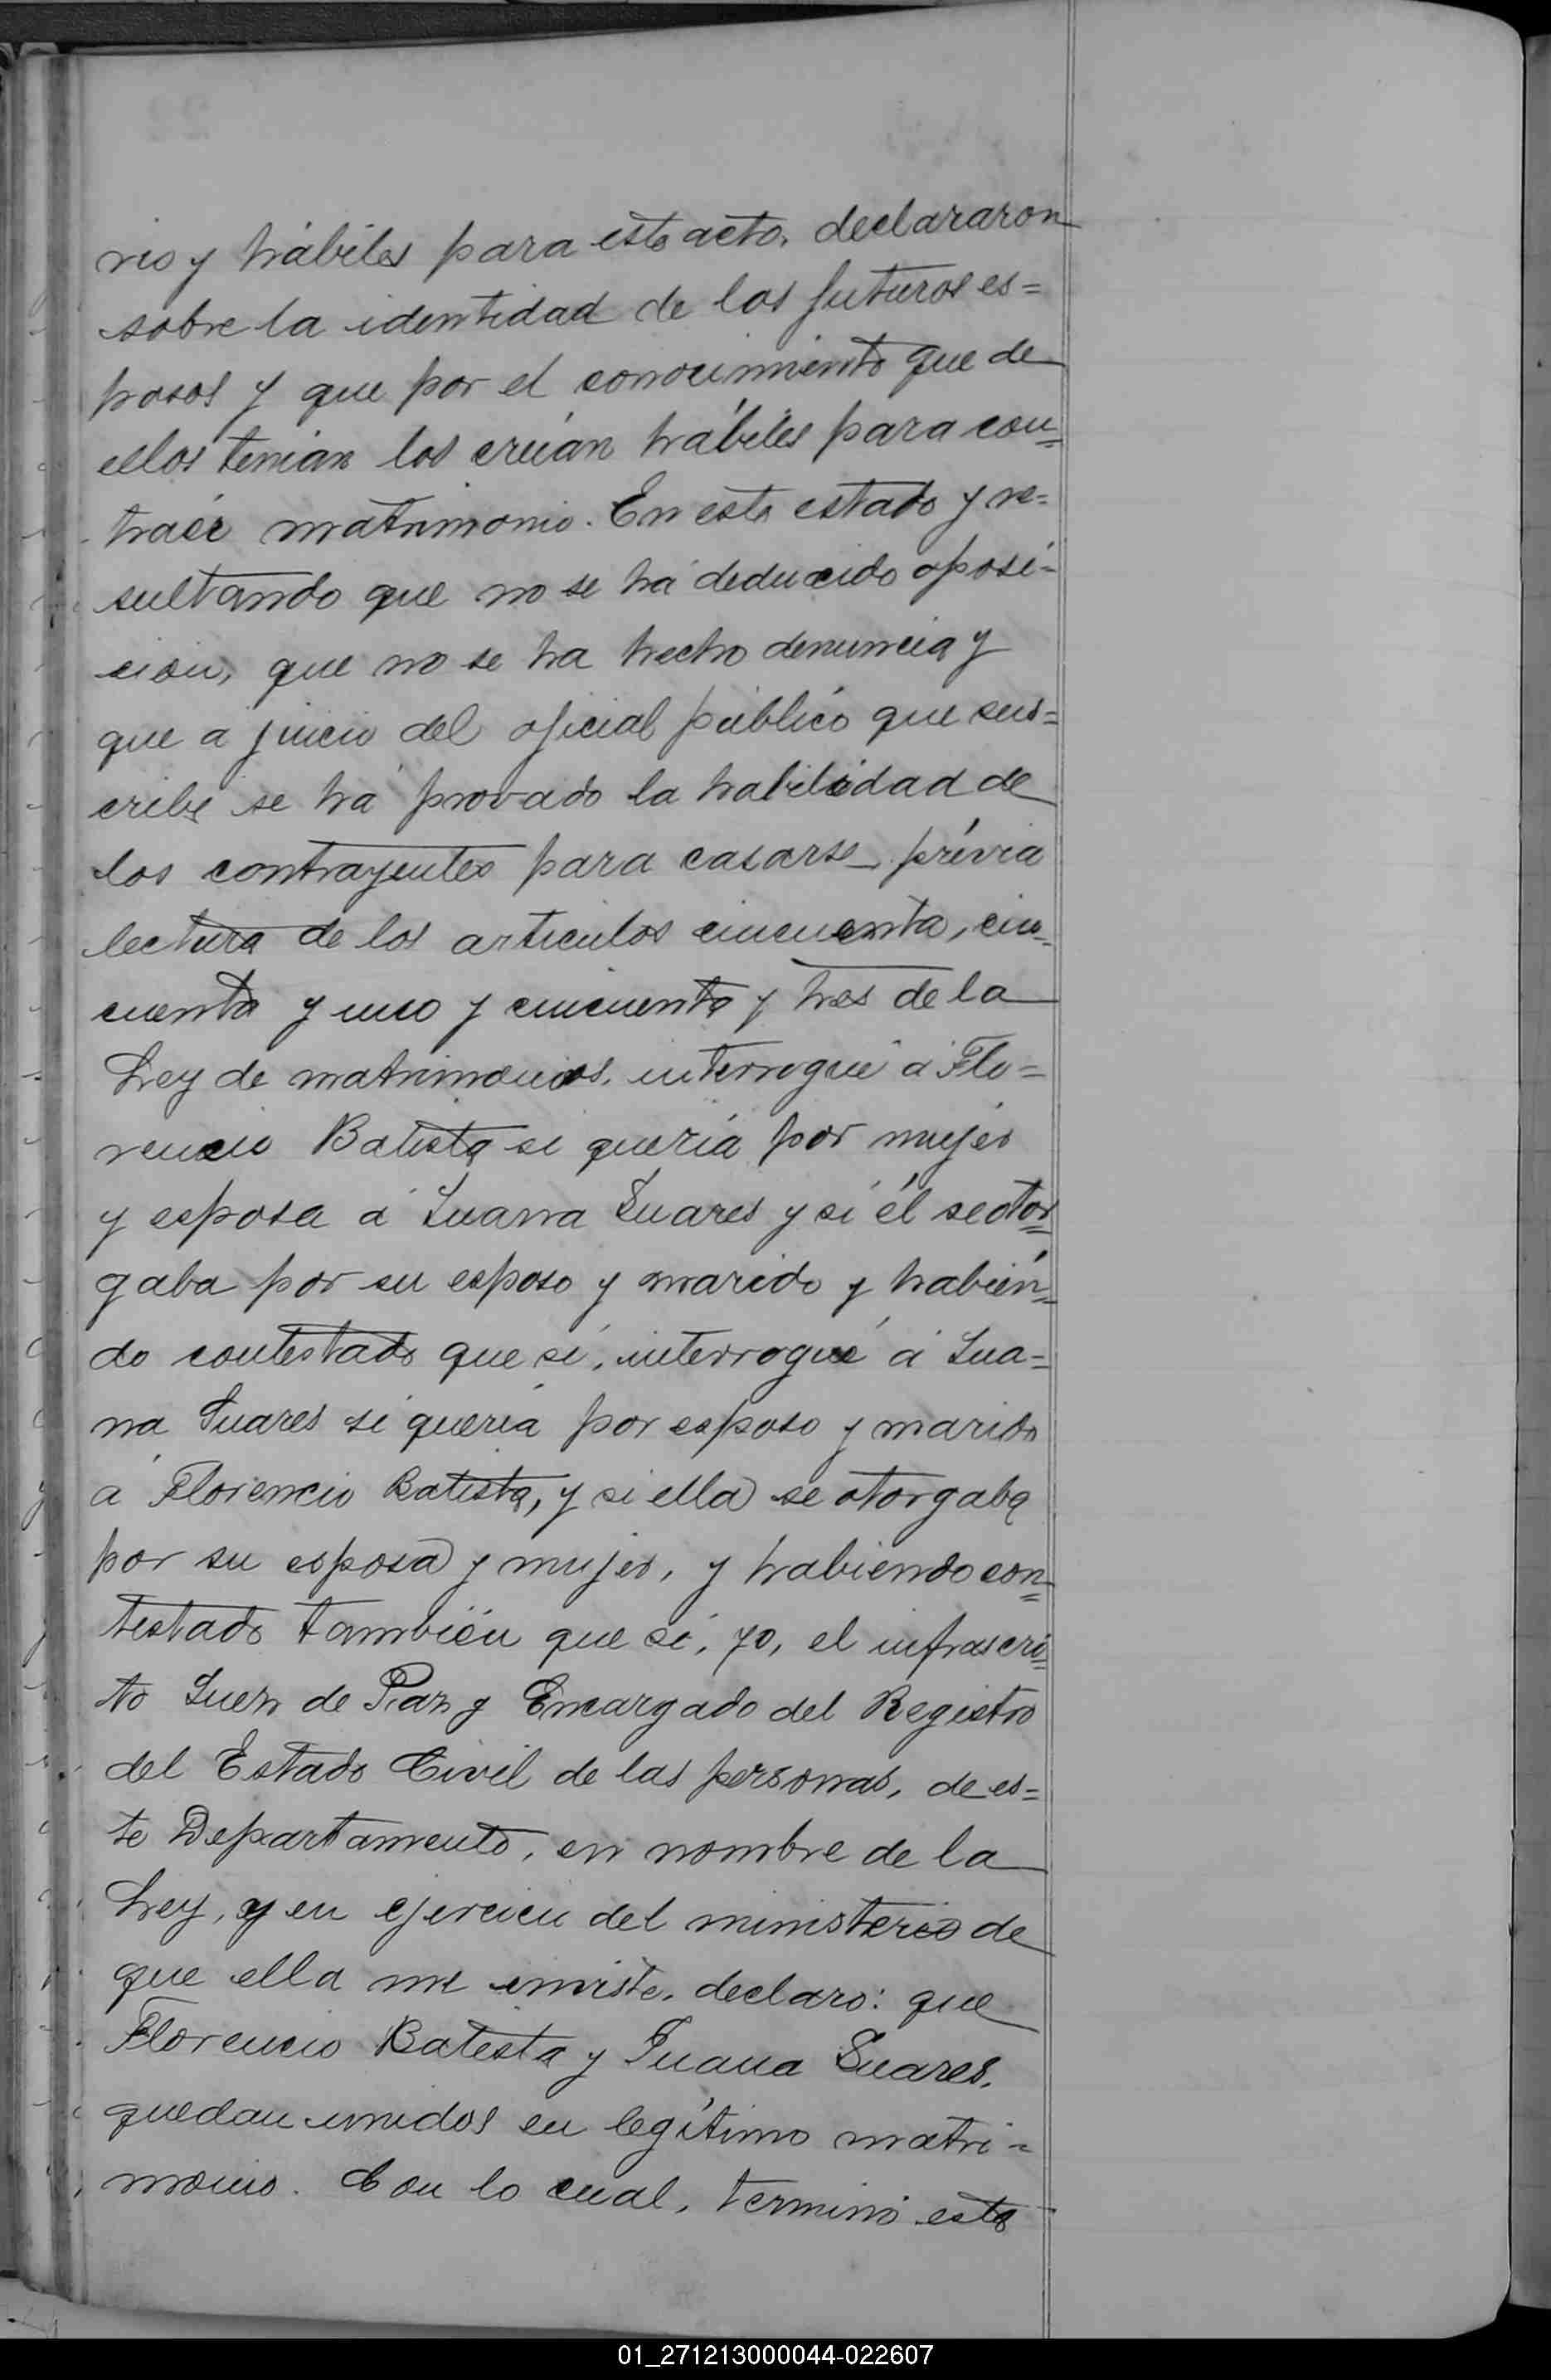 rio y hábiles para este acto, declararon
sobre la identidad de los futuros es=
posos y que por el conocimiento que de
ellos tenian los creían hábiles para con=
traér matrimonio. En este estado y re=
sultando que no se há deducido oposi=
cion, que no se ha hecho denuncia y
que a juicio del oficial público que sus=
cribe se há provado la habilidad de
los contrayentes para casarse, prévia
lectura de los articulos cincuenta, cin=
cuenta y uno y cincuenta y tres de la
Ley de matrimonios, interrogué á Flo=
rencio Batista si quería por mujér
y esposa á Juana Suares y si él se otor=
gaba por su esposo y marido y habién=
do contestado que sí, interrogué á Jua=
na Suares si quería por esposo y marido
á Florencio Batista, y si ella se otorgaba
por su esposa y mujér, y habiendo con=
testado también que sí, yo, el infrascri=
to Juez de Paz y Encargado del Registro
del Estado Civil de las personas, de es=
te Departamento, en nombre de la
Ley, y en ejercicio del ministerio de
que ella me inviste, declaro: que
Florencio Batista y Juana Suares,
quedan unidos en legítimo matri=
monio. Con lo cual, terminó este
01_271213000044-022607